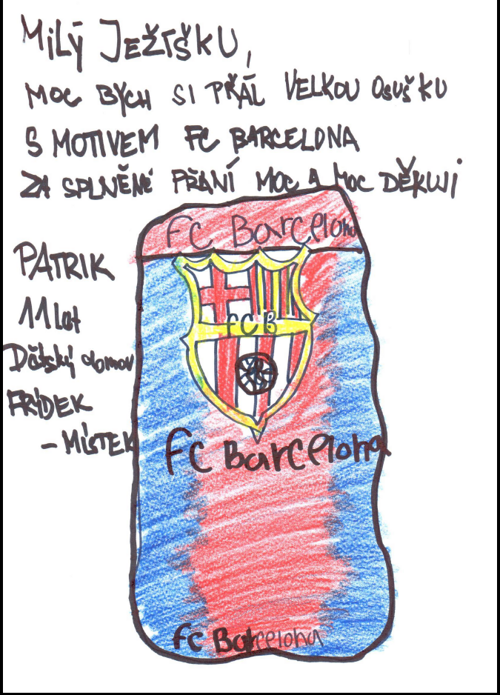 Milý Ježíšku,
MOC BYCH SI PŘÁL VELKOU OSUŠKU
S MOTIVEM FC BARCELONA
ZA SPLNĚNÉ PŘÁNÍ MOC A MOC DĚKUJI
FC Barcelona
PATRIK
11 let
Dětský domov
FRÝDEK
- MÍSTEK
FCB
FC Barcelona
FC Barcelona